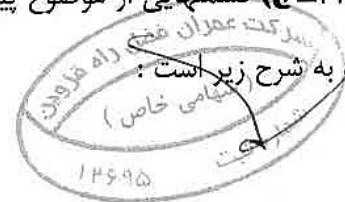 قسمتهایی از موضوع
به شرح زیر است :
شرکت عمران فضای راه قزوین
(سهامی خاص)
شماره ثبت
۱۲۶۹۵